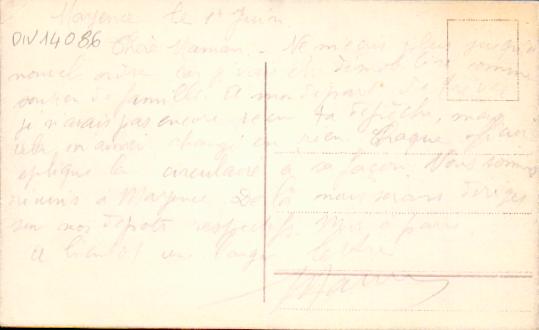 Mayence le 1er Juin
DIV14086
Chère Maman. Ne m'écris plus jusqu'à
nouvel ordre car je vais être démobilisé comme
soutien de famille. Et mon départ
je n'avais pas encore reçu ta dépêche, mais
cela n'aurait changé en rien. Chaque officier
applique la circulaire à sa façon. Nous sommes
réunis à Mayence. De là nous serons dirigés
sur nos dépôts respectifs. à Paris.
A bientôt une longue lettre